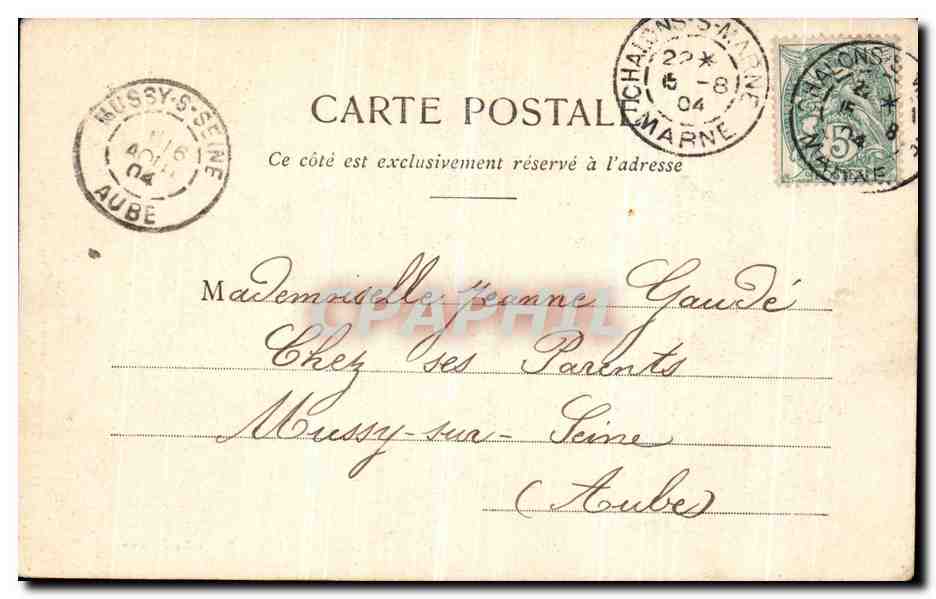 CHALONS-S-MARNE
22*
5 -8
04
MARNE
CHALONS-S-
5 * 8
04
MARNE
5
MUSSY-S-SEINE
6
AOUT
04
AUBE
CARTE POSTALE
Ce côté est exclusivement réservé à l'adresse
Mademoiselle Jeanne Gaudé
Chez ses Parents
Mussy-sur-Seine
(Aube)
CPAPHIL